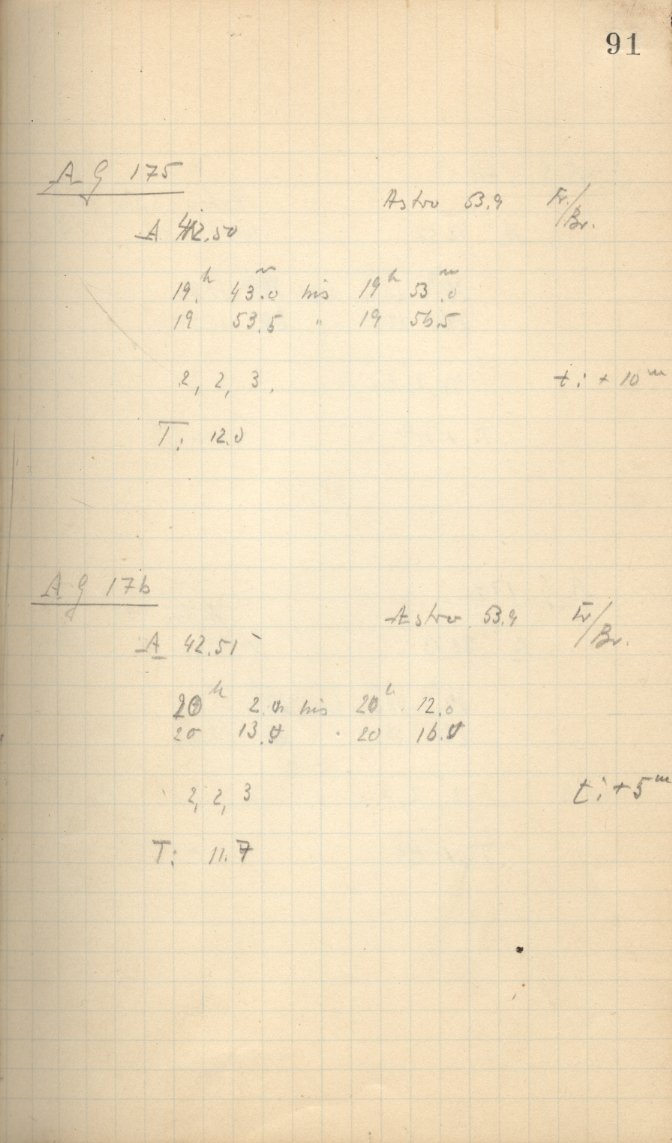 91
A G 175
Astro 53.9 Fr./Br.
A 42.50
19.h 43.0m bis 19h 53.0m
19 53.5 " 19 56.5
2, 2, 3. t: + 10m
T: 12.0
A G 176
Astro 53.9 Fr/Br.
A 42.51
20h 2.0 bis 20h 12.0
20 13.0 " 20 16.0
2, 2, 3 t: + 5m
T: 11.7